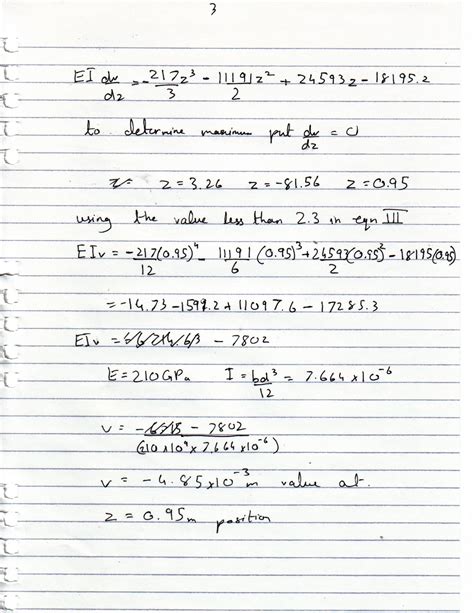 3
EI dv/dz = -217z³/3 - 11191z²/2 + 24593z - 18195.2
to determine maximum put dv/dz = 0
z = 3.26 z = -81.56 z = 0.95
using the value less than 2.3 in eqn III
EIv = -217(0.95)⁴/12 - 11191(0.95)³/6 + 24593(0.95)²/2 - 18195(0.95)
= -14.73 - 1599.2 + 11097.6 - 17285.3
EIv = - 7802
E = 210GPa I = bd³/12 = 7.664 x 10⁻⁶
v = - 7802 / (210 x 10⁹ x 7.664 x 10⁻⁶)
v = -4.85 x 10⁻³ m value at.
z = 0.95m position